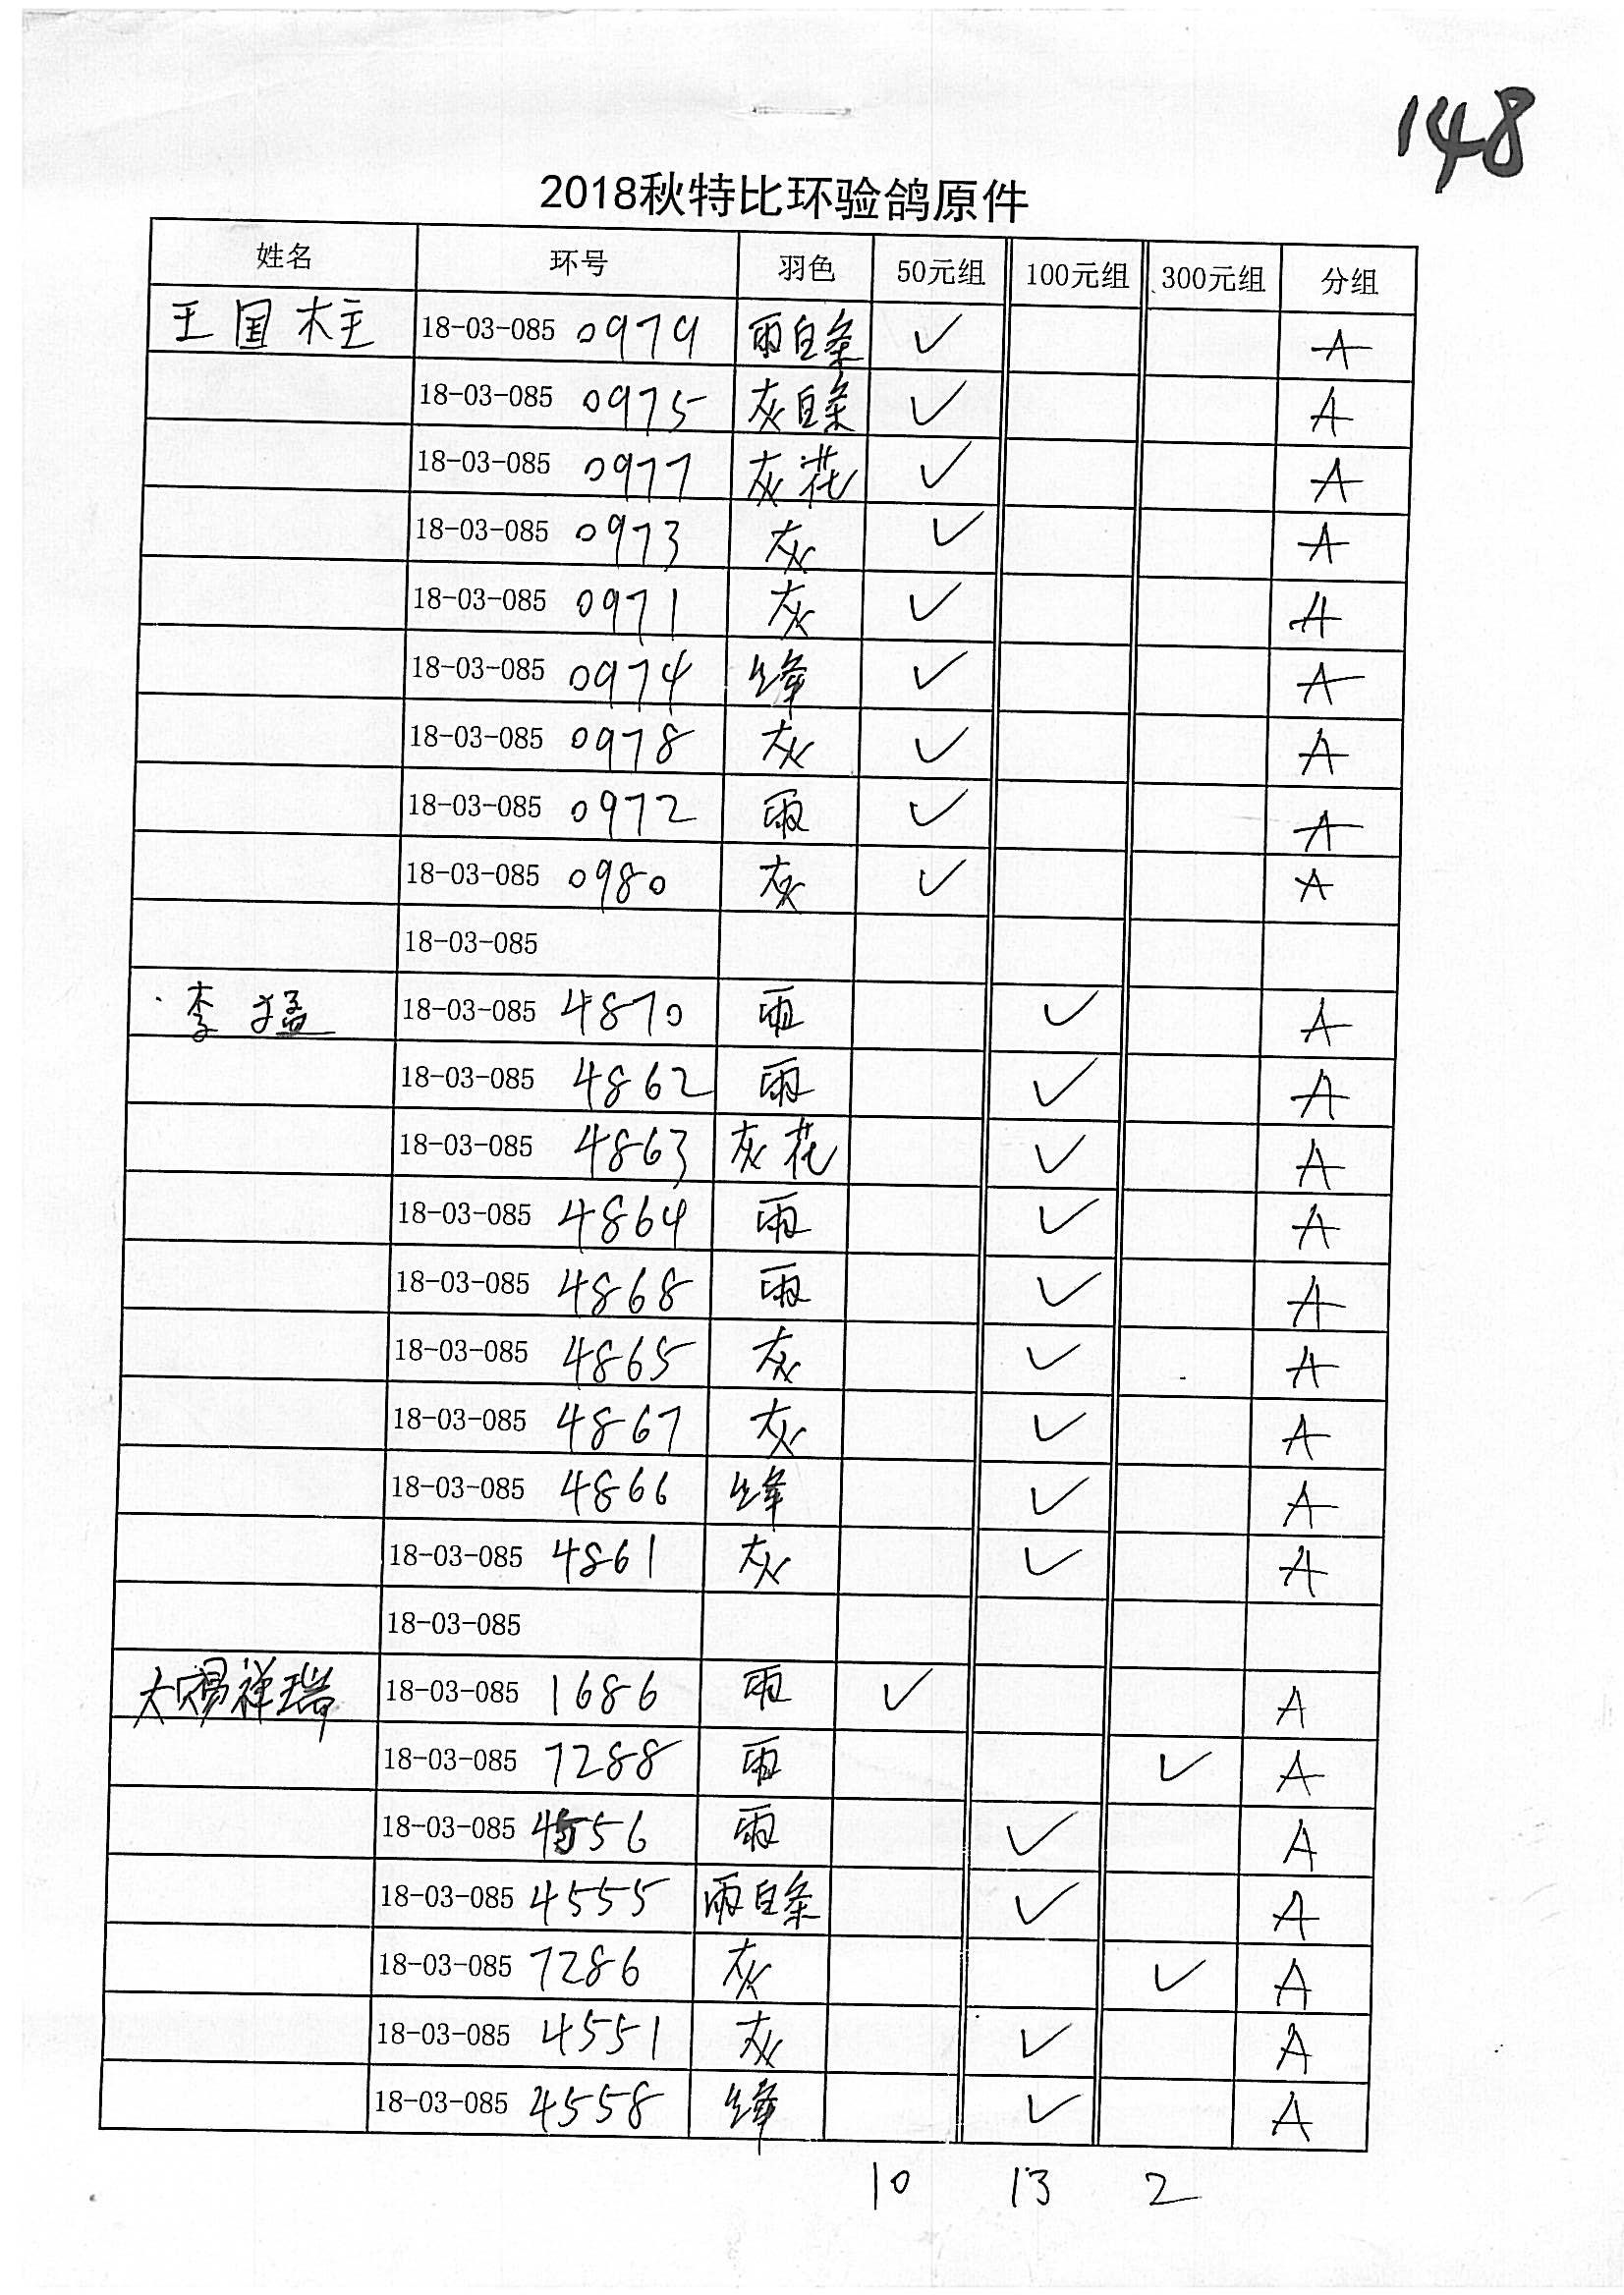 148
2018秋特比环验鸽原件
姓名 环号 羽色 50元组 100元组 300元组 分组
王国柱 18-03-085 0979 雨白条 ✓ A
18-03-085 0975 灰白条 ✓ A
18-03-085 0977 灰花 ✓ A
18-03-085 0973 灰 ✓ A
18-03-085 0971 灰 ✓ A
18-03-085 0974 绛 ✓ A
18-03-085 0978 灰 ✓ A
18-03-085 0972 雨 ✓ A
18-03-085 0980 灰 ✓ A
18-03-085
李猛 18-03-085 4870 雨 ✓ A
18-03-085 4862 雨 ✓ A
18-03-085 4863 灰花 ✓ A
18-03-085 4864 雨 ✓ A
18-03-085 4868 雨 ✓ A
18-03-085 4865 灰 ✓ A
18-03-085 4867 灰 ✓ A
18-03-085 4866 绛 ✓ A
18-03-085 4861 灰 ✓ A
18-03-085
天赐祥瑞 18-03-085 1686 雨 ✓ A
18-03-085 7288 雨 ✓ A
18-03-085 4556 雨 ✓ A
18-03-085 4555 雨白条 ✓ A
18-03-085 7286 灰 ✓ A
18-03-085 4551 灰 ✓ A
18-03-085 4558 绛 ✓ A
10 13 2